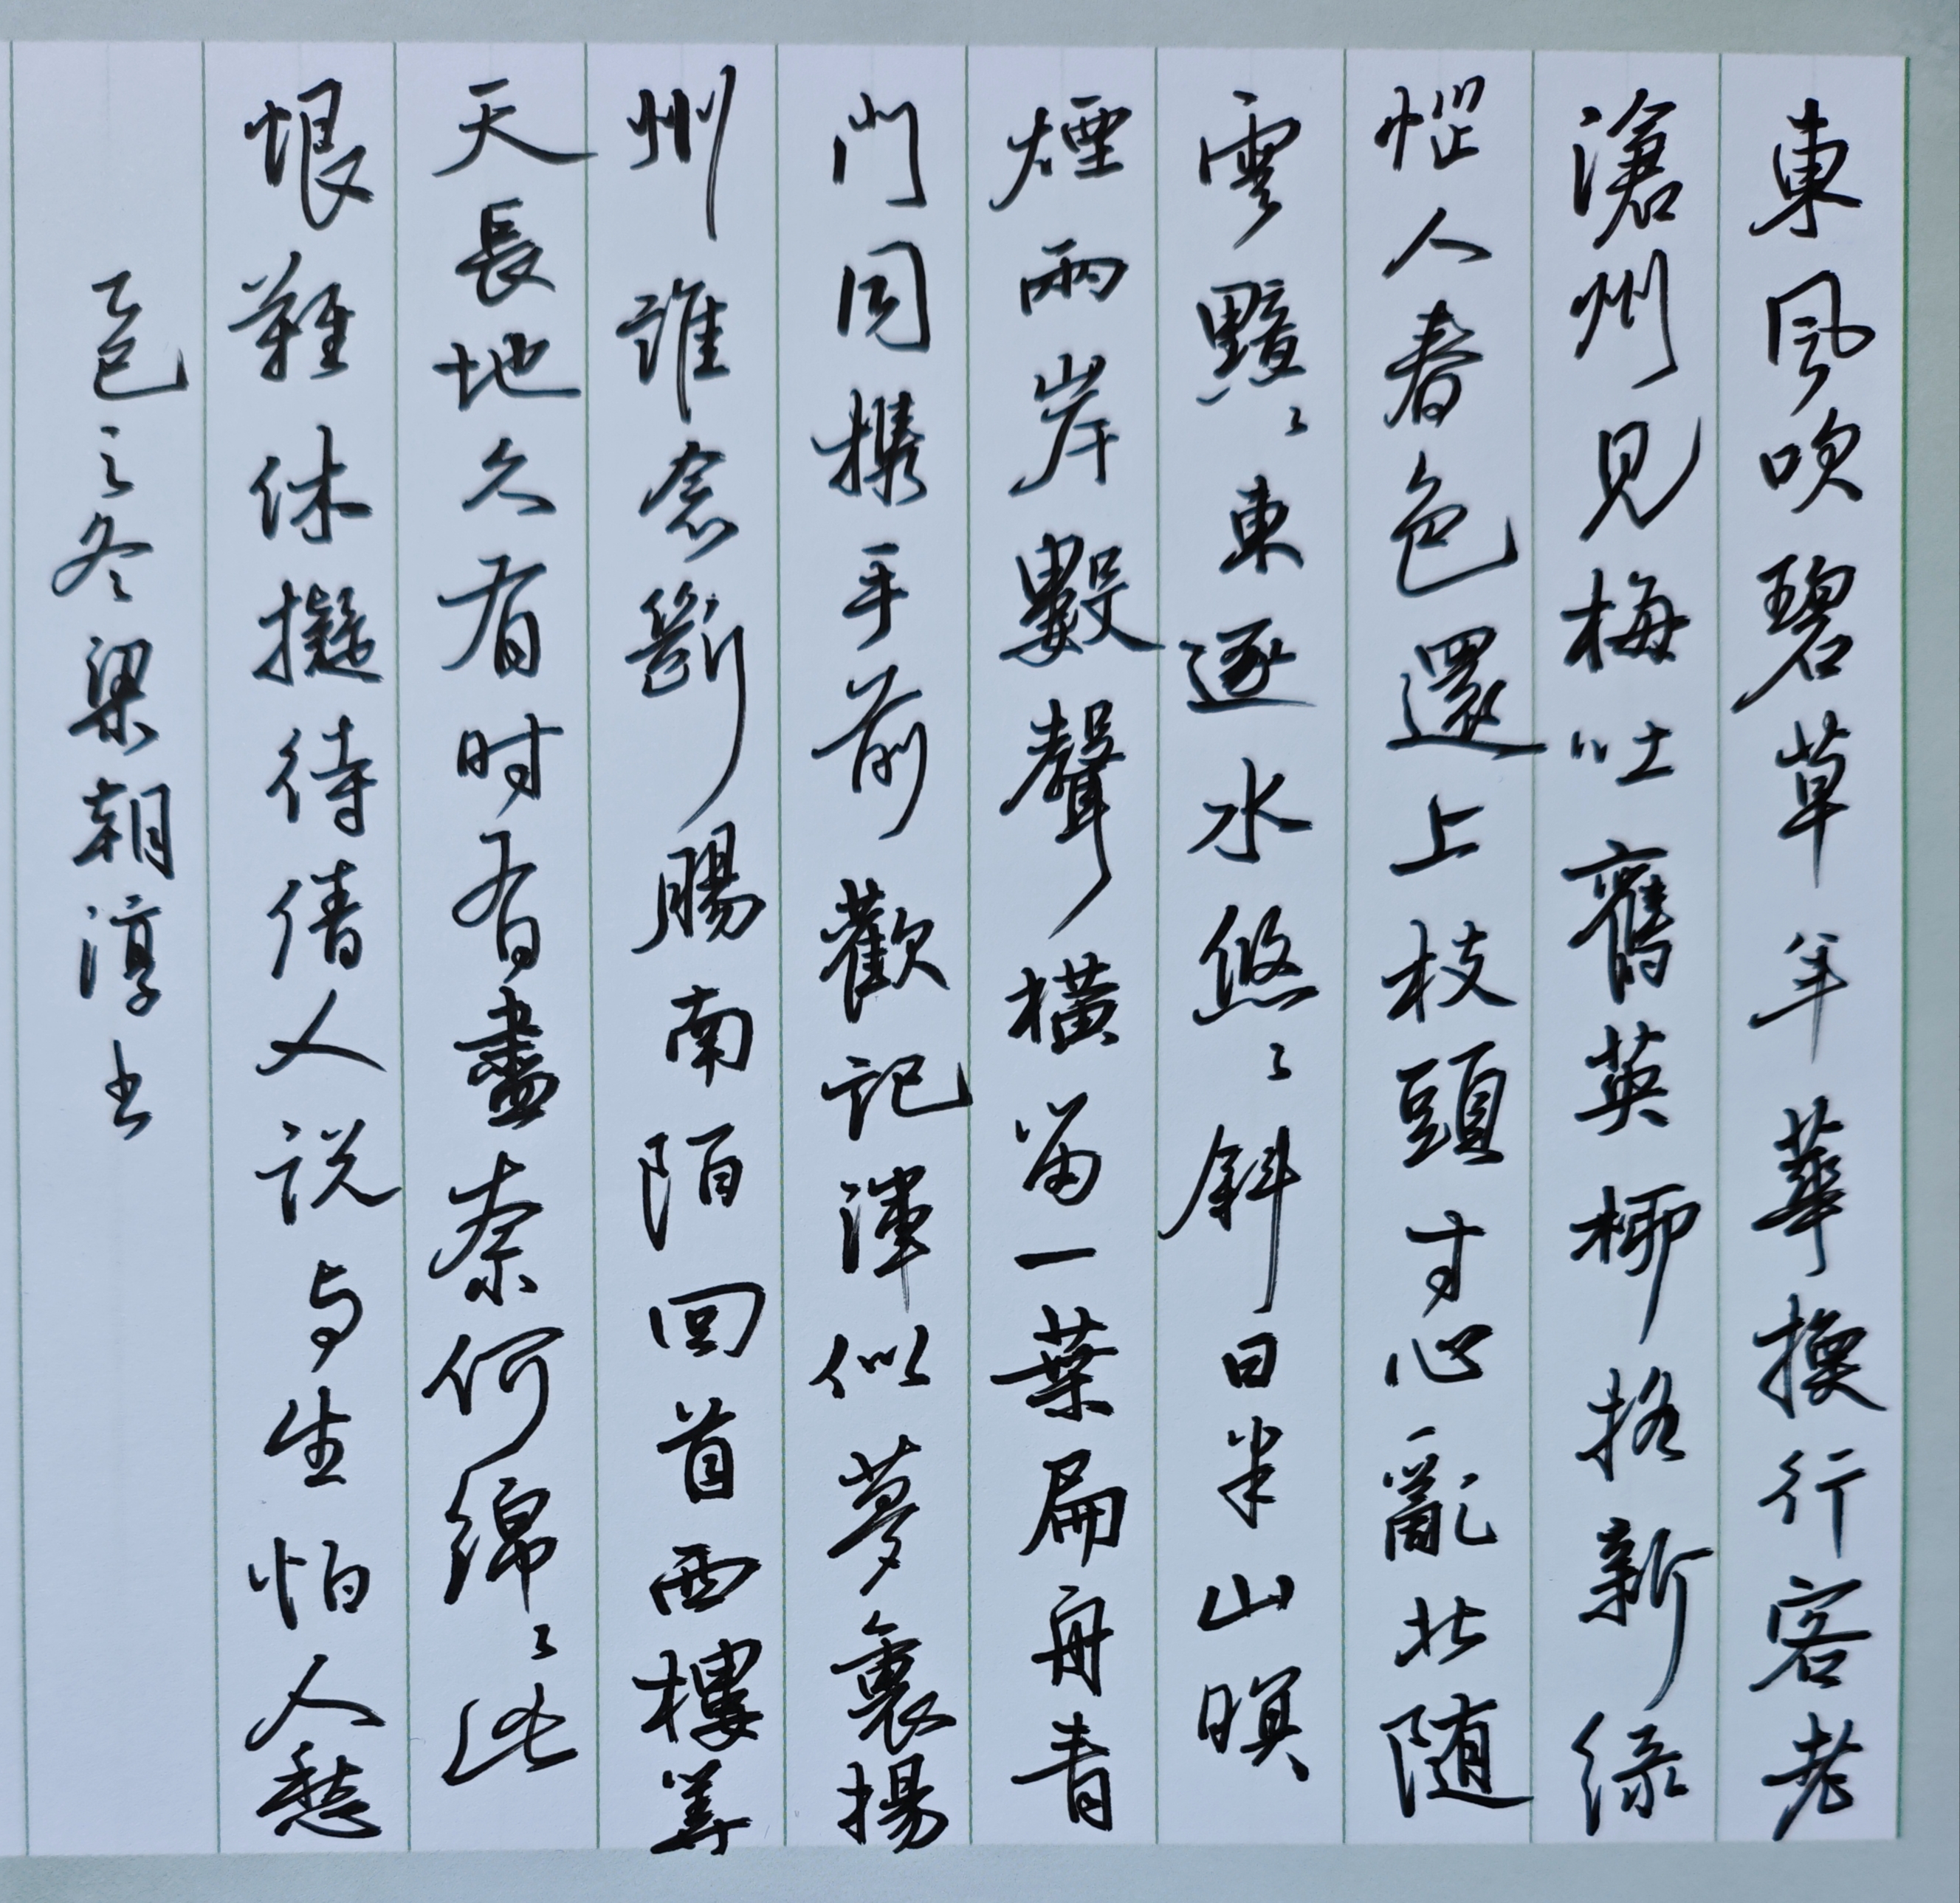 東風吹碧草年華換行客老
滄州見梅吐舊英柳摇新緑
惱人春色還上枝頭寸心亂北随
雲黯〻東逐水悠〻斜日半山暝
煙兩岸數聲橫笛一葉扁舟青
門同携手前歡記渾似夢裏揚
州誰念斷腸南陌回首西樓算
天長地久有时有盡奈何綿〻此
恨難休擬待倩人説与生怕人愁
乙巳之冬梁朝淳书